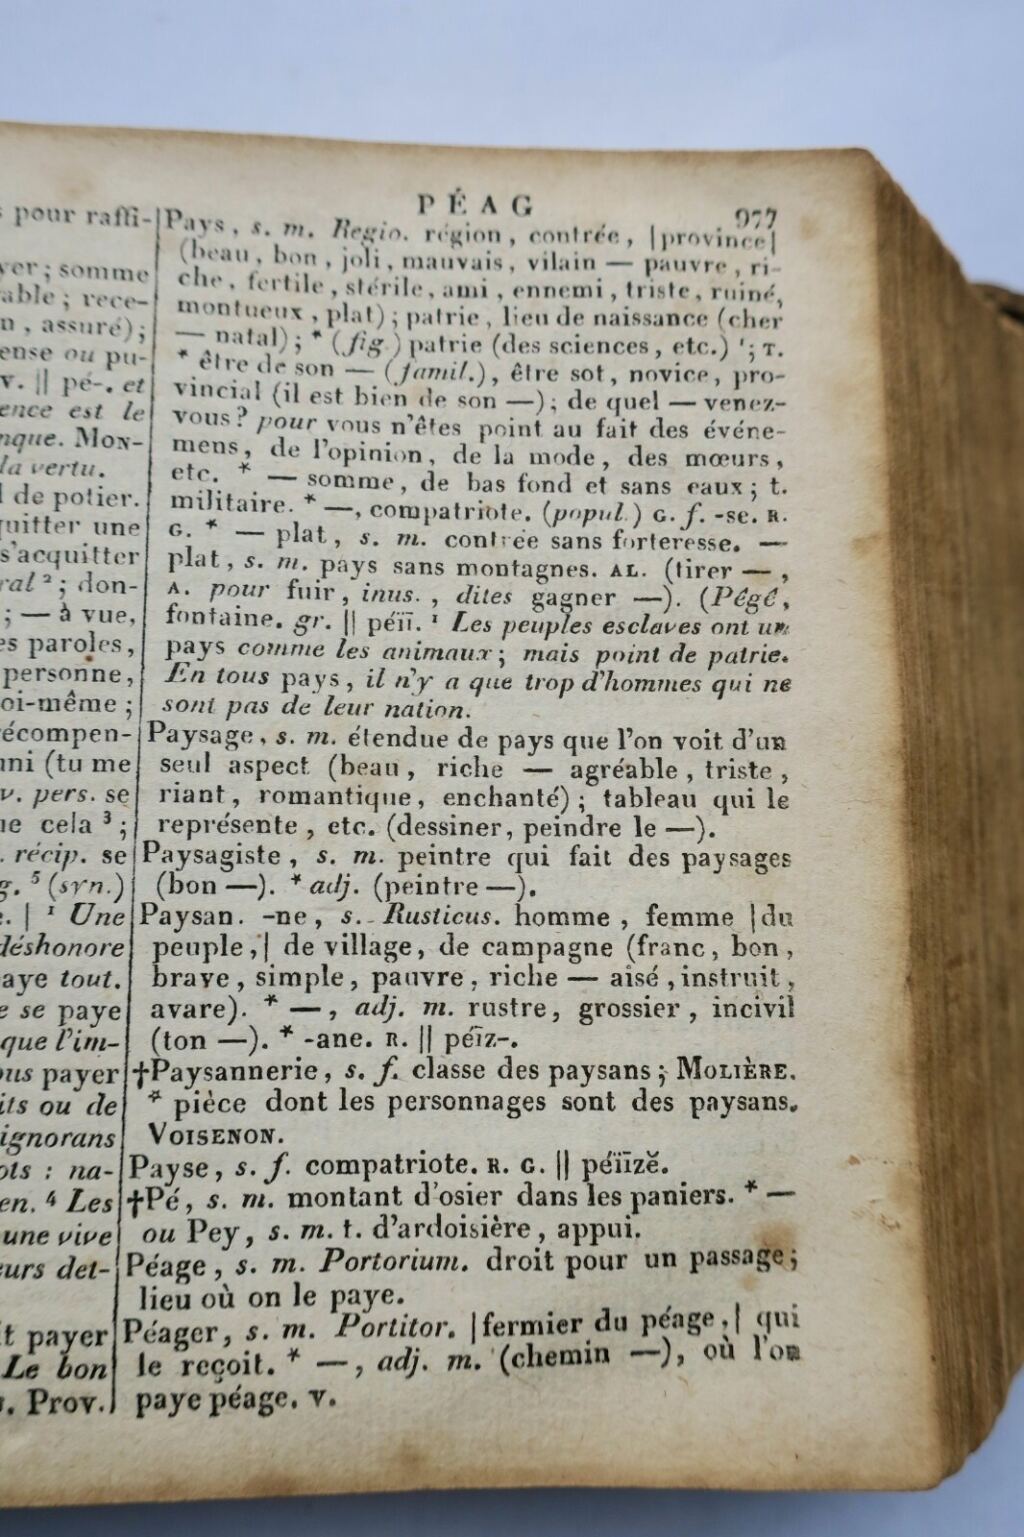 PÉAG
977
s pour raffi-
ver ; somme
able ; rece-
n , assuré) ;
ense ou pu-
v. || pé-. et
ence est le
nque. MON-
la vertu.
l de potier.
quitter une
s'acquitter
ral ² ; don-
; — à vue,
es paroles,
personne,
oi-même ;
récompen-
ni (tu me
v. pers. se
e cela ³ ;
. récip. se
g. ⁵ (syn.)
. | ¹ Une
déshonore
aye tout.
e se paye
que l'im-
us payer
its ou de
ignorans
ots : na-
en. ⁴ Les
une vive
eurs det-
t payer
Le bon
s. Prov.
Pays, s. m. Regio. région, contrée, |province|
(beau, bon, joli, mauvais, vilain — pauvre, ri-
che, fertile, stérile, ami, ennemi, triste, ruiné,
montueux, plat) ; patrie, lieu de naissance (cher
— natal) ; * (fig.) patrie (des sciences, etc.) ¹; T.
* être de son — (famil.), être sot, novice, pro-
vincial (il est bien de son —) ; de quel — venez-
vous ? pour vous n'êtes point au fait des événe-
mens, de l'opinion, de la mode, des mœurs,
etc. * — somme, de bas fond et sans eaux ; t.
militaire. * —, compatriote. (popul.) G. f. -se. R.
G. * — plat, s. m. contrée sans forteresse. —
plat, s. m. pays sans montagnes. AL. (tirer —,
A. pour fuir, inus., dites gagner —). (Pêgê,
fontaine. gr. || péïï. ¹ Les peuples esclaves ont un
pays comme les animaux ; mais point de patrie.
En tous pays, il n'y a que trop d'hommes qui ne
sont pas de leur nation.
Paysage, s. m. étendue de pays que l'on voit d'un
seul aspect (beau, riche — agréable, triste,
riant, romantique, enchanté) ; tableau qui le
représente, etc. (dessiner, peindre le —).
Paysagiste, s. m. peintre qui fait des paysages
(bon —). * adj. (peintre —).
Paysan. -ne, s. Rusticus. homme, femme |du
peuple,| de village, de campagne (franc, bon,
brave, simple, pauvre, riche — aisé, instruit,
avare). * —, adj. m. rustre, grossier, incivil
(ton —). * -ane. R. || péïz-.
†Paysannerie, s. f. classe des paysans ; MOLIÈRE.
* pièce dont les personnages sont des paysans.
VOISENON.
Payse, s. f. compatriote. R. G. || péïïzĕ.
†Pé, s. m. montant d'osier dans les paniers. * —
ou Pey, s. m. t. d'ardoisière, appui.
Péage, s. m. Portorium. droit pour un passage ;
lieu où on le paye.
Péager, s. m. Portitor. |fermier du péage,| qui
le reçoit. * —, adj. m. (chemin —), où l'on
paye péage. v.